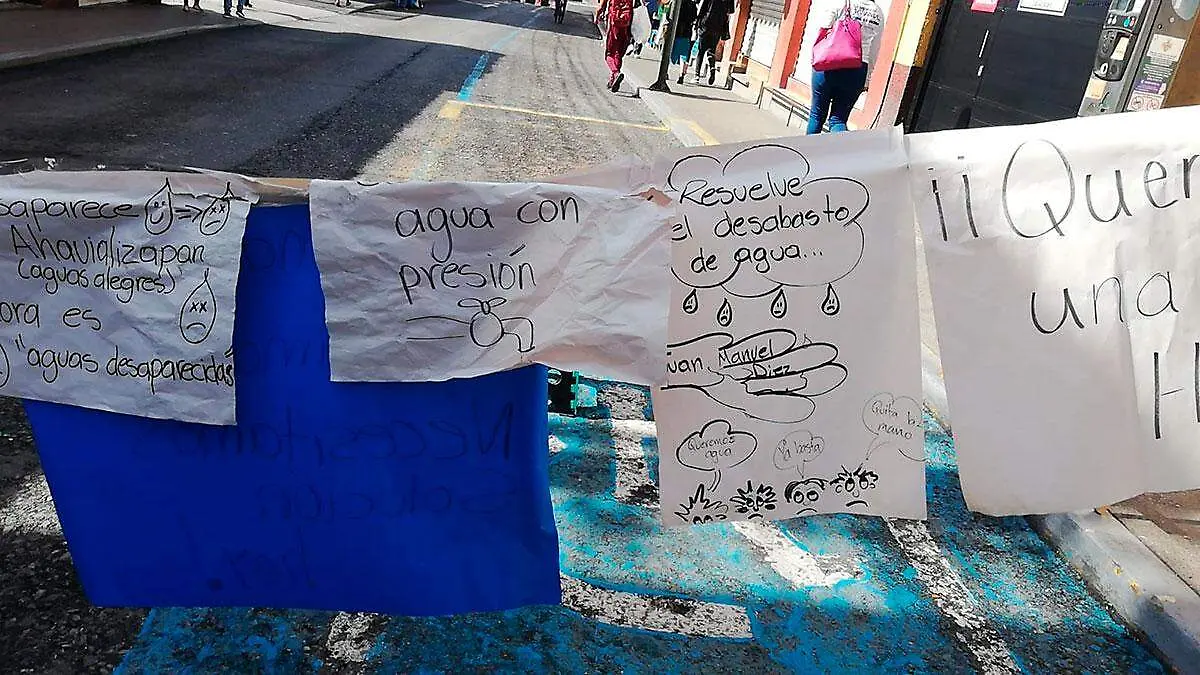 saparece
Ahavializapan
(aguas alegres)
ora es
"aguas desaparecidas"
agua con
presión
Resuelve
el desabasto
de agua...
Juan Manuel
Diez
Queremos
agua
Ya basta
Quita la
mano
¡¡Quer
una
H
Necesitamos
solución
hoy!